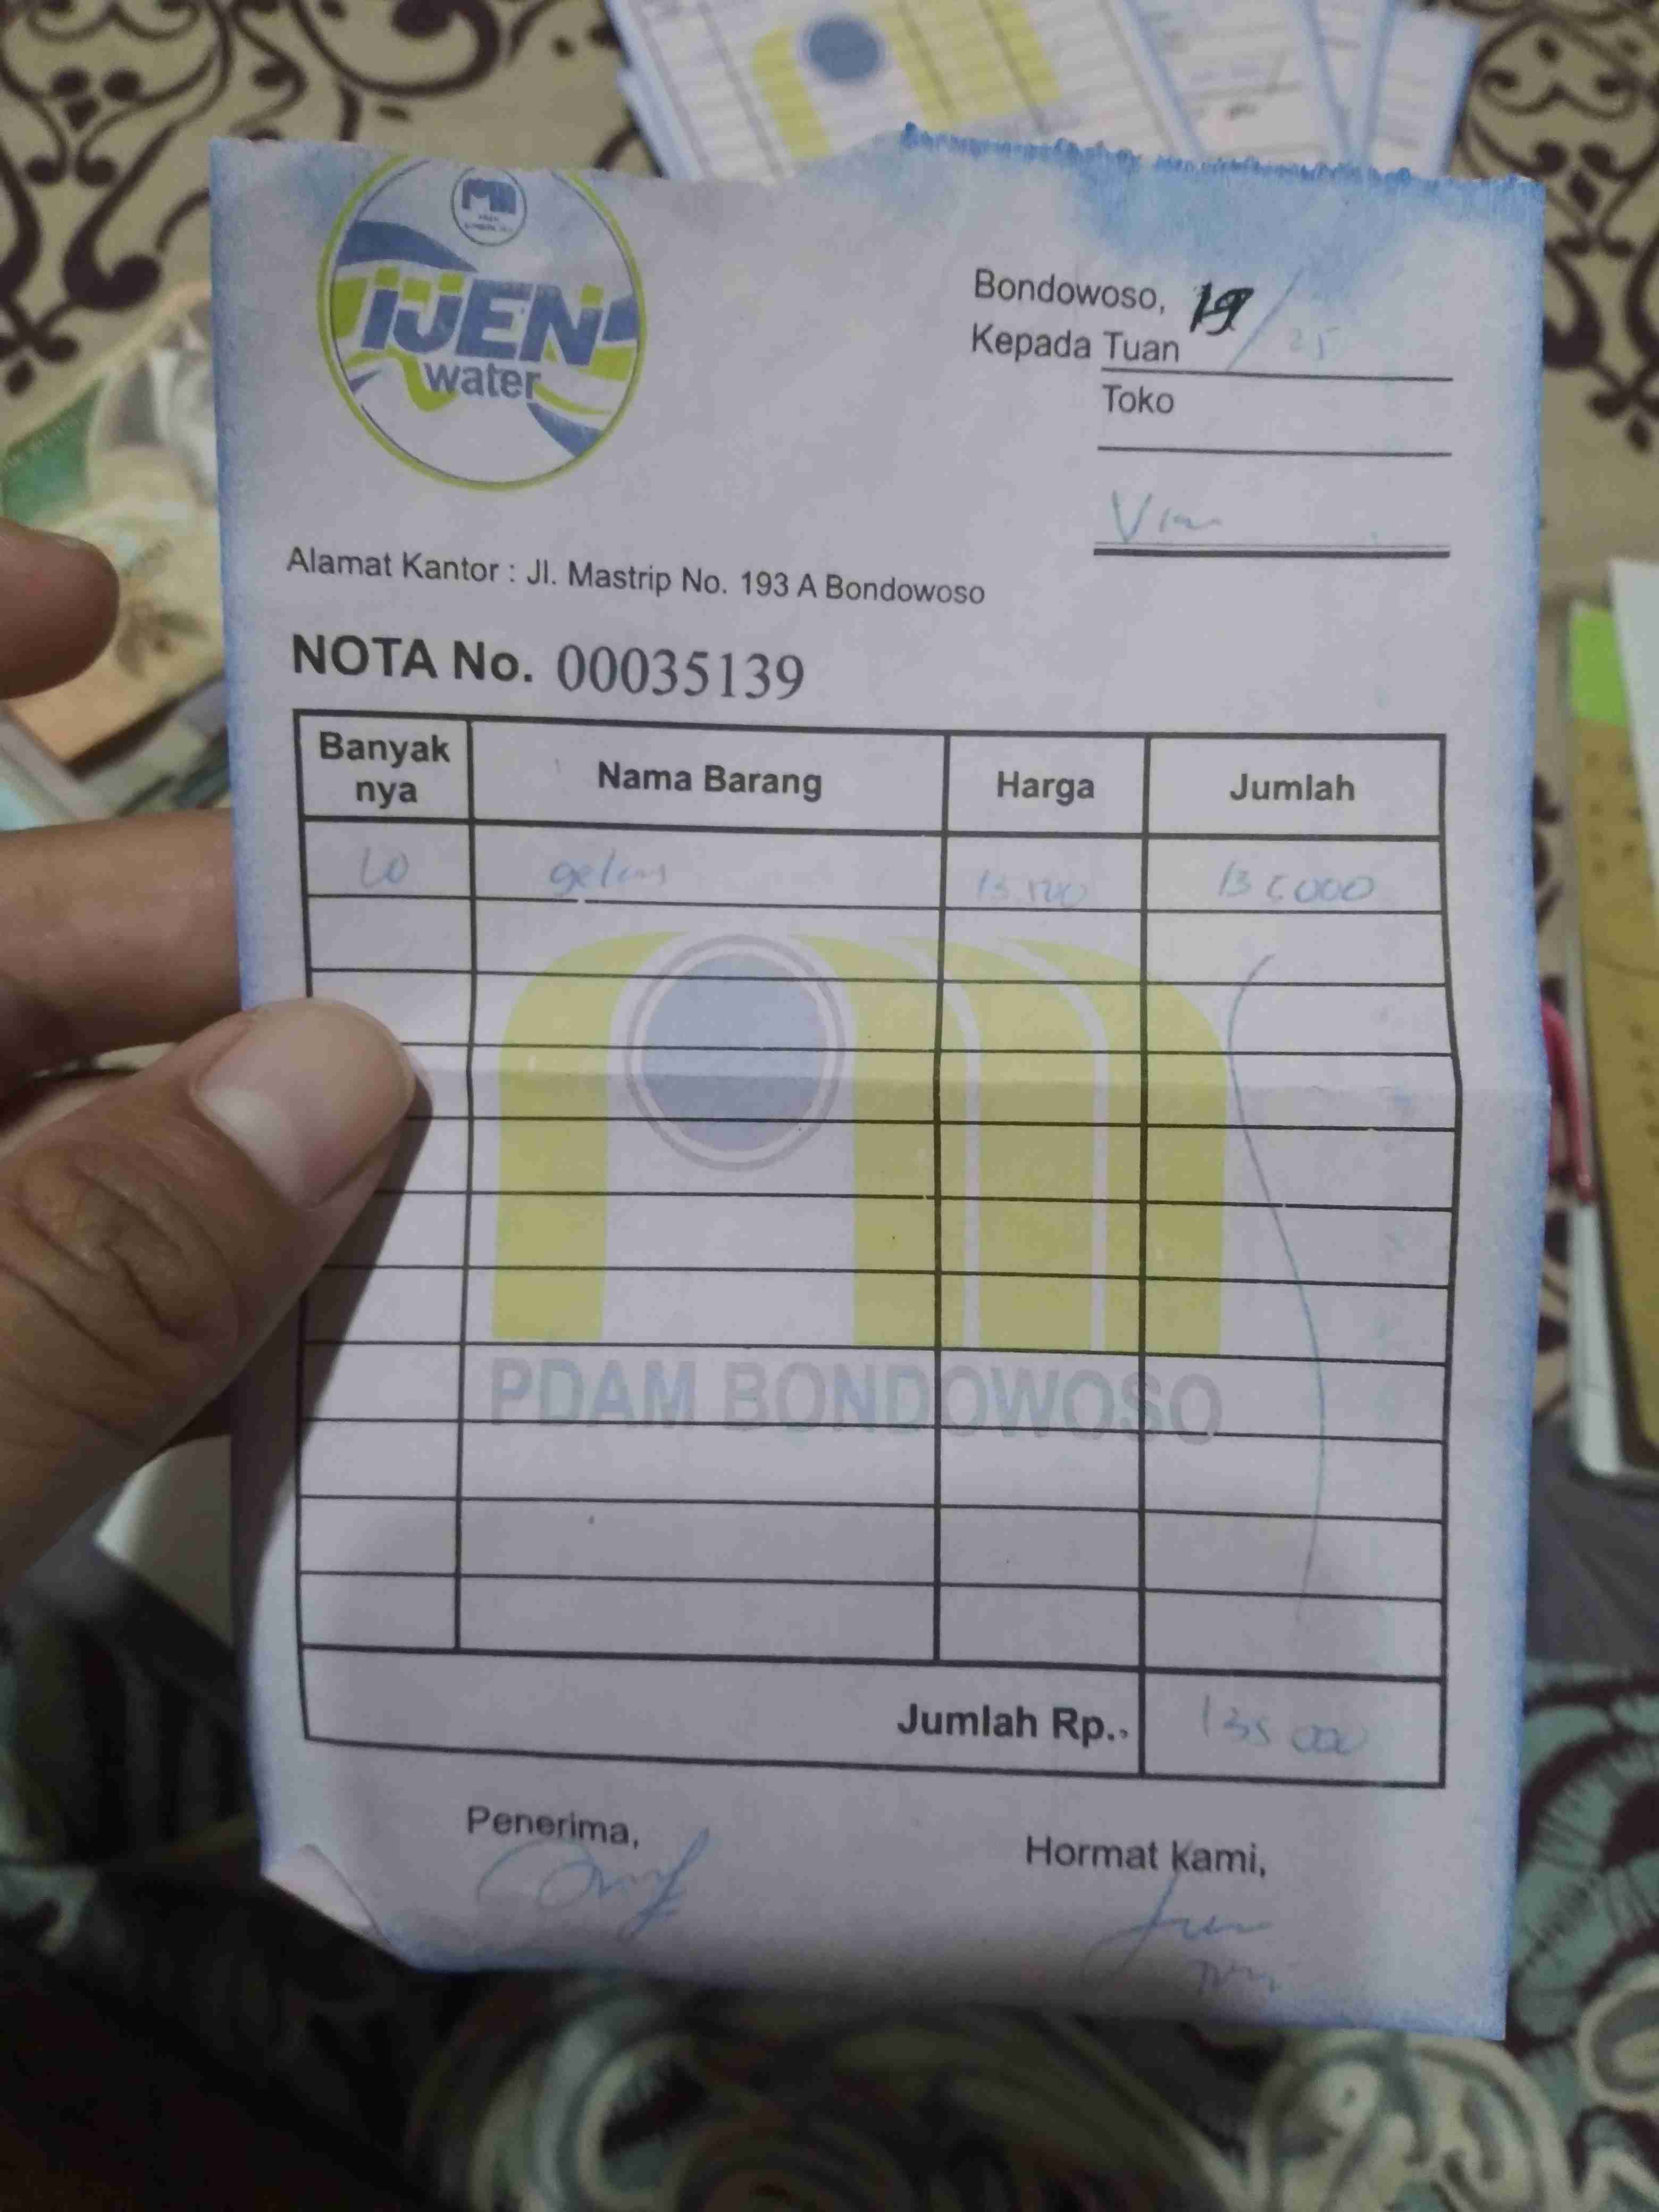 IJEN
water
Bondowoso, 19 / 25
Kepada Tuan
Toko
Alamat Kantor : Jl. Mastrip No. 193 A Bondowoso
NOTA No. 00035139
Banyak nya Nama Barang Harga Jumlah
10 gelas 13.500 135.000
PDAM BONDOWOSO
Jumlah Rp.. 135 000
Penerima,
Hormat Kami,